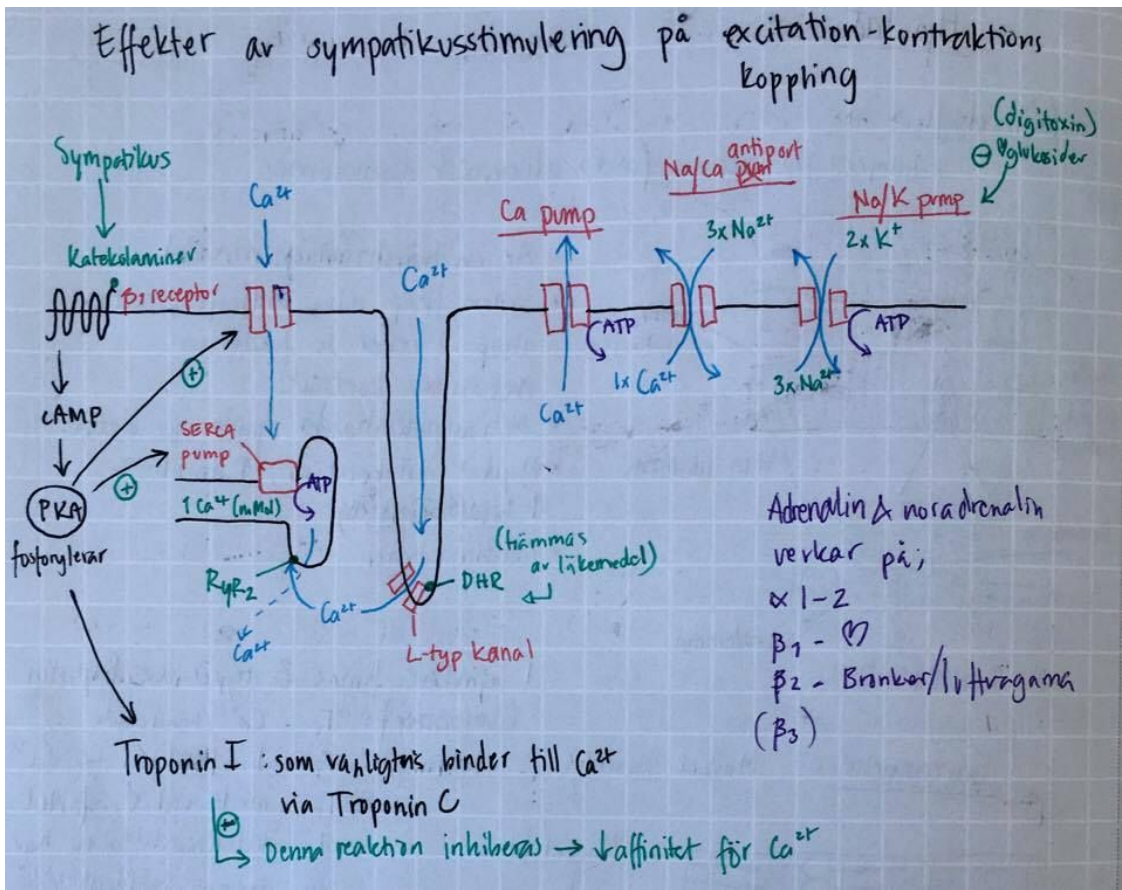 Effekter av sympatikusstimulering på excitation-kontraktions
koppling
(digitoxin)
⊖ glukosider
Sympatikus
Ca²⁺
Katekolaminer
β₁ receptor
cAMP
PKA
fosforylerar
⊕
⊕
SERCA
pump
ATP
↑Ca²⁺ (mMol)
RyR₂
Ca²⁺
Ca²⁺
Ca²⁺
DHR
(hämmas
av läkemedel)
L-typ kanal
Ca pump
ATP
Ca²⁺
antiport
Na/Ca
3xNa²⁺
1x Ca²⁺
Na/K pump
2x K⁺
ATP
3xNa²⁺
Adrenalin & noradrenalin
verkar på;
α 1-2
β₁ - ♡
β₂ - Bronker/luftvägarna
(β₃)
Troponin I : som vanligtvis binder till Ca²⁺
via Troponin C
⊕
Denna reaktion inhiberas → ↓affinitet för Ca²⁺